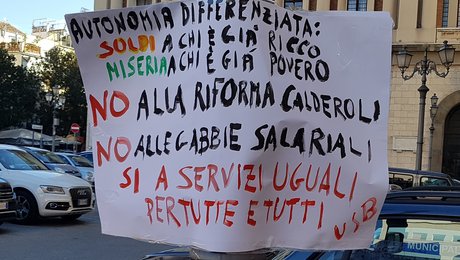 AUTONOMIA DIFFERENZIATA:
SOLDI A CHI È GIÀ RICCO
MISERIA A CHI È GIÀ POVERO
NO ALLA RIFORMA CALDEROLI
NO ALLE GABBIE SALARIALI
SI A SERVIZI UGUALI
PER TUTTE E TUTTI
USB
MUNICIPAL